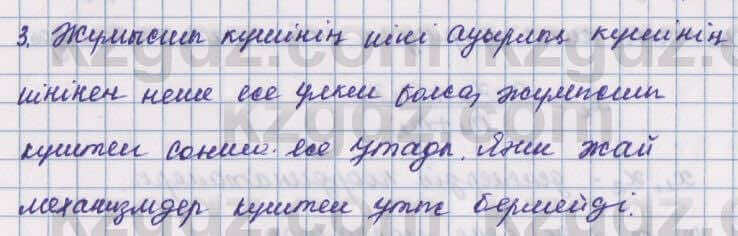 3. Жұмысшы күшінің иіні ауырлық күшінің
иінінен неше есе үлкен болса, жұмысшы
күштен сонша есе ұтады. Яғни жай
механизмдер күштен ұтыс бермейді.
kzgdz.com